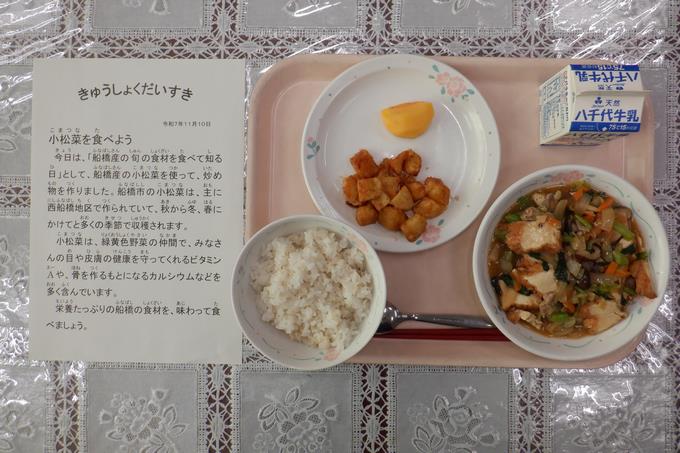 きゅうしょくだいすき
令和7年11月10日
小松菜を食べよう
今日は、「船橋産の旬の食材を食べて知る
日」として、船橋産の小松菜を使って、炒め
物を作りました。船橋市の小松菜は、主に
西船橋地区で作られていて、秋から冬、春に
かけてと多くの季節で収穫されます。
小松菜は、緑黄色野菜の仲間で、みなさ
んの目や皮膚の健康を守ってくれるビタミン
Aや、骨を作るもとになるカルシウムなどを
多く含んでいます。
栄養たっぷりの船橋の食材を、味わって食
べましょう。
天然
八千代牛乳